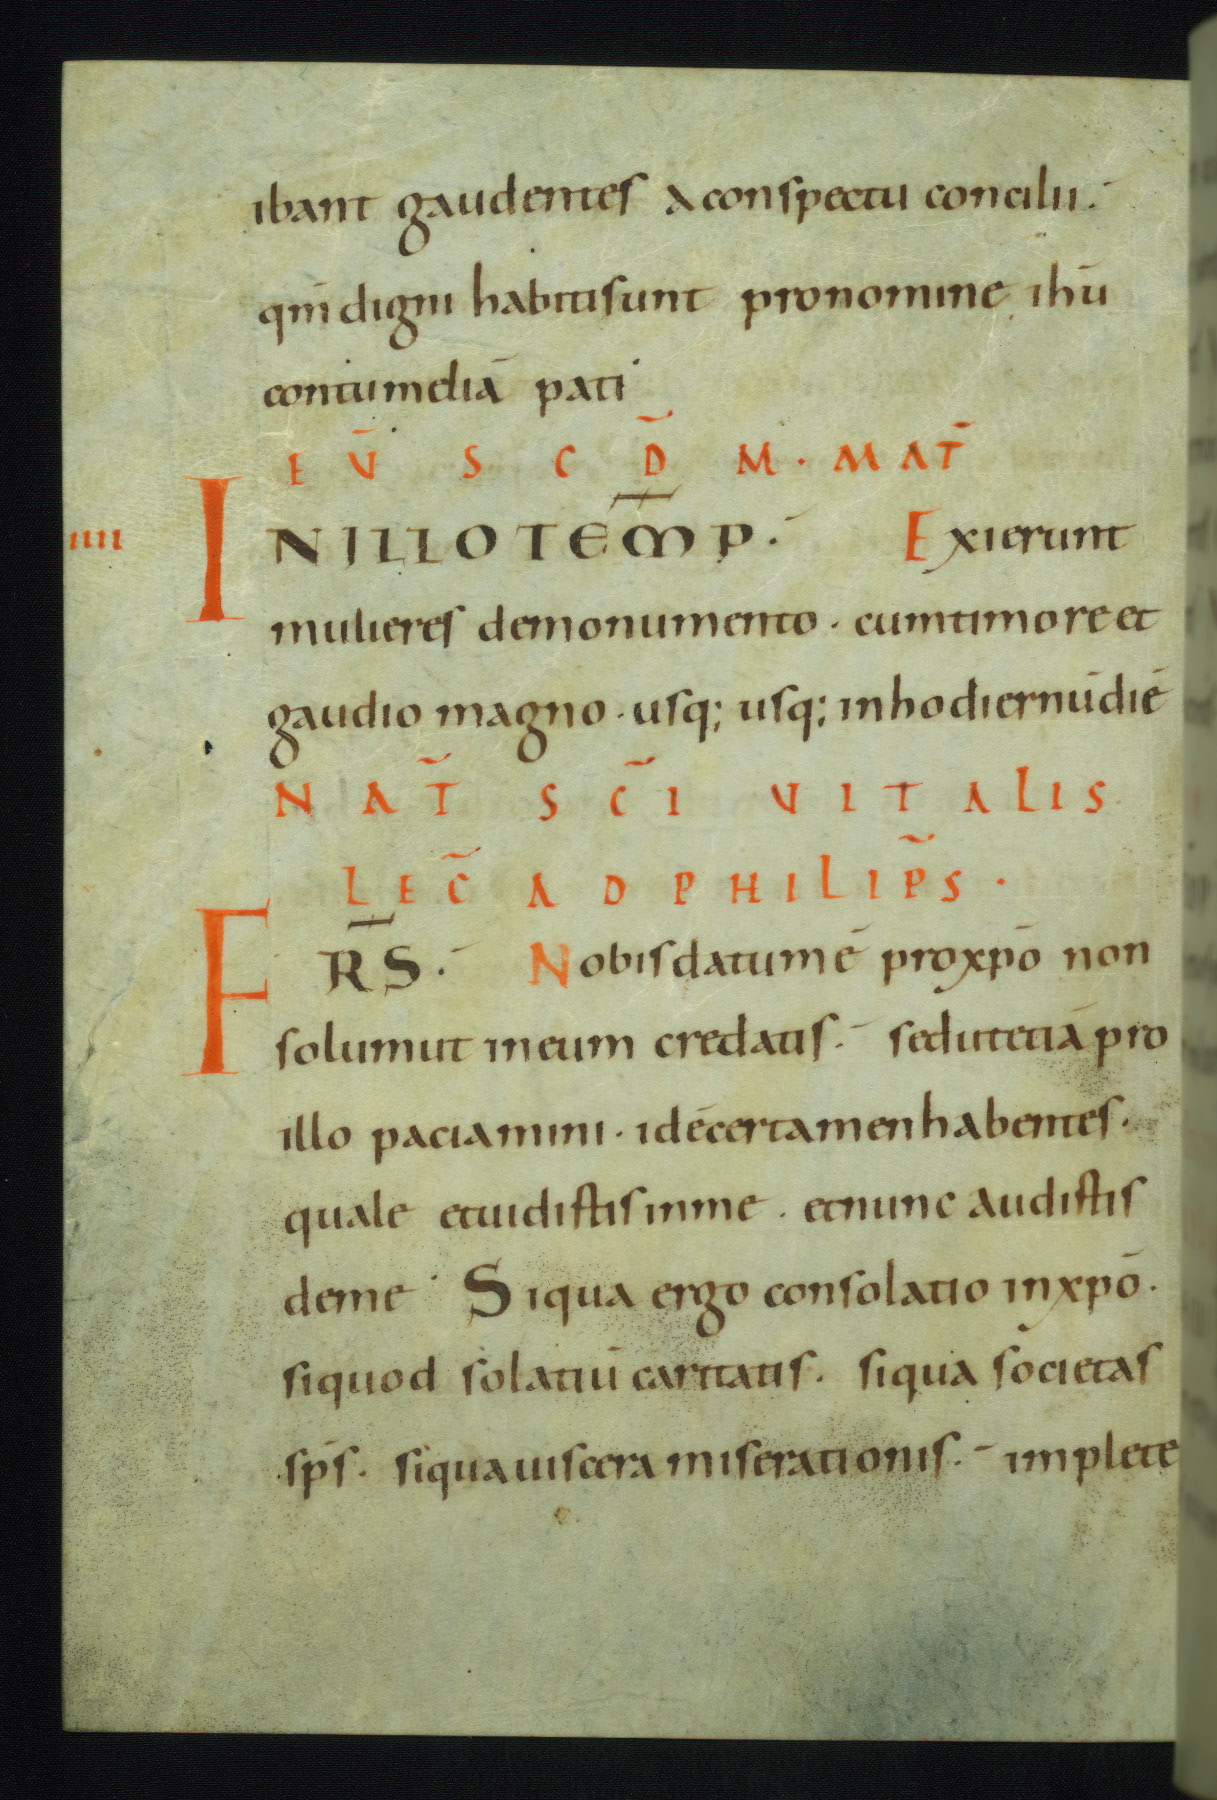 ibant gaudentes a conspectu concilii.
qm̄ digni habiti sunt pro nomine ihū
contumeliā pati
EŪ SCD̄ M. MAT̄
IIII IN ILLO TEM̄P. Exierunt
mulieres de monumento. cum timore et
gaudio magno. usq; usq; in hodiernū diē
NAT̄ SC̄I VITALIS
LEC̄ AD PHILIP̄S.
FR̄S. Nobis datum ē pro xpō non
solum ut in eum credatis. sed ut etiā pro
illo paciamini. idē certamen habentes.
quale et uidistis in me. et nunc audistis
de me Si qua ergo consolatio in xpō.
si quod solatiū caritatis. si qua societas
sp̄s. si qua uiscera miserationis. implete